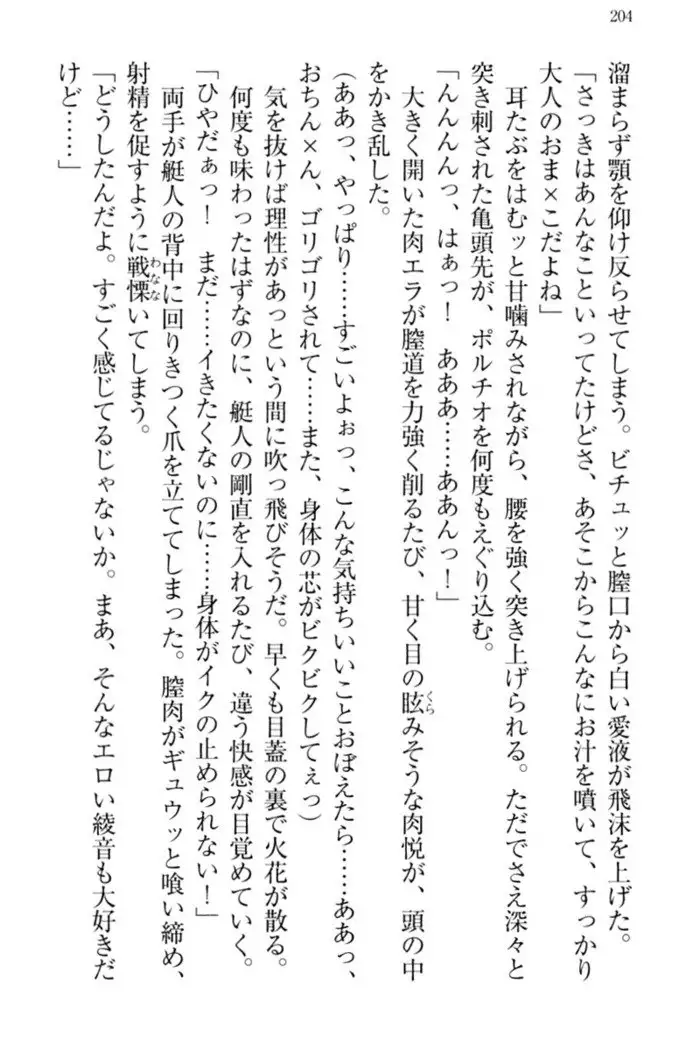 204
溜まらず顎を仰け反らせてしまう。ビチュッと膣口から白い愛液が飛沫を上げた。
「さっきはあんなこといってたけどさ、あそこからこんなにお汁を噴いて、すっかり
大人のおま×こだよね」
耳たぶをはむッと甘噛みされながら、腰を強く突き上げられる。ただでさえ深々と
突き刺された亀頭先が、ポルチオを何度もえぐり込む。
「んんんんっ、はぁっ！　あああ……ああんっ！」
大きく開いた肉エラが膣道を力強く削るたび、甘く目の眩みそうな肉悦が、頭の中
くら
をかき乱した。
（ああっ、やっぱり……すごいよぉっ、こんな気持ちいいことおぼえたら……ああっ、
おちん×ん、ゴリゴリされて……また、身体の芯がビクビクしてぇっ）
気を抜けば理性があっという間に吹っ飛びそうだ。早くも目蓋の裏で火花が散る。
何度も味わったはずなのに、艇人の剛直を入れるたび、違う快感が目覚めていく。
「ひやだぁっ！　まだ……イきたくないのに……身体がイクの止められない！」
両手が艇人の背中に回りきつく爪を立ててしまった。膣肉がギュウッと喰い締め、
射精を促すように戦慄いてしまう。
わなな
「どうしたんだよ。すごく感じてるじゃないか。まあ、そんなエロい綾音も大好きだ
けど……」